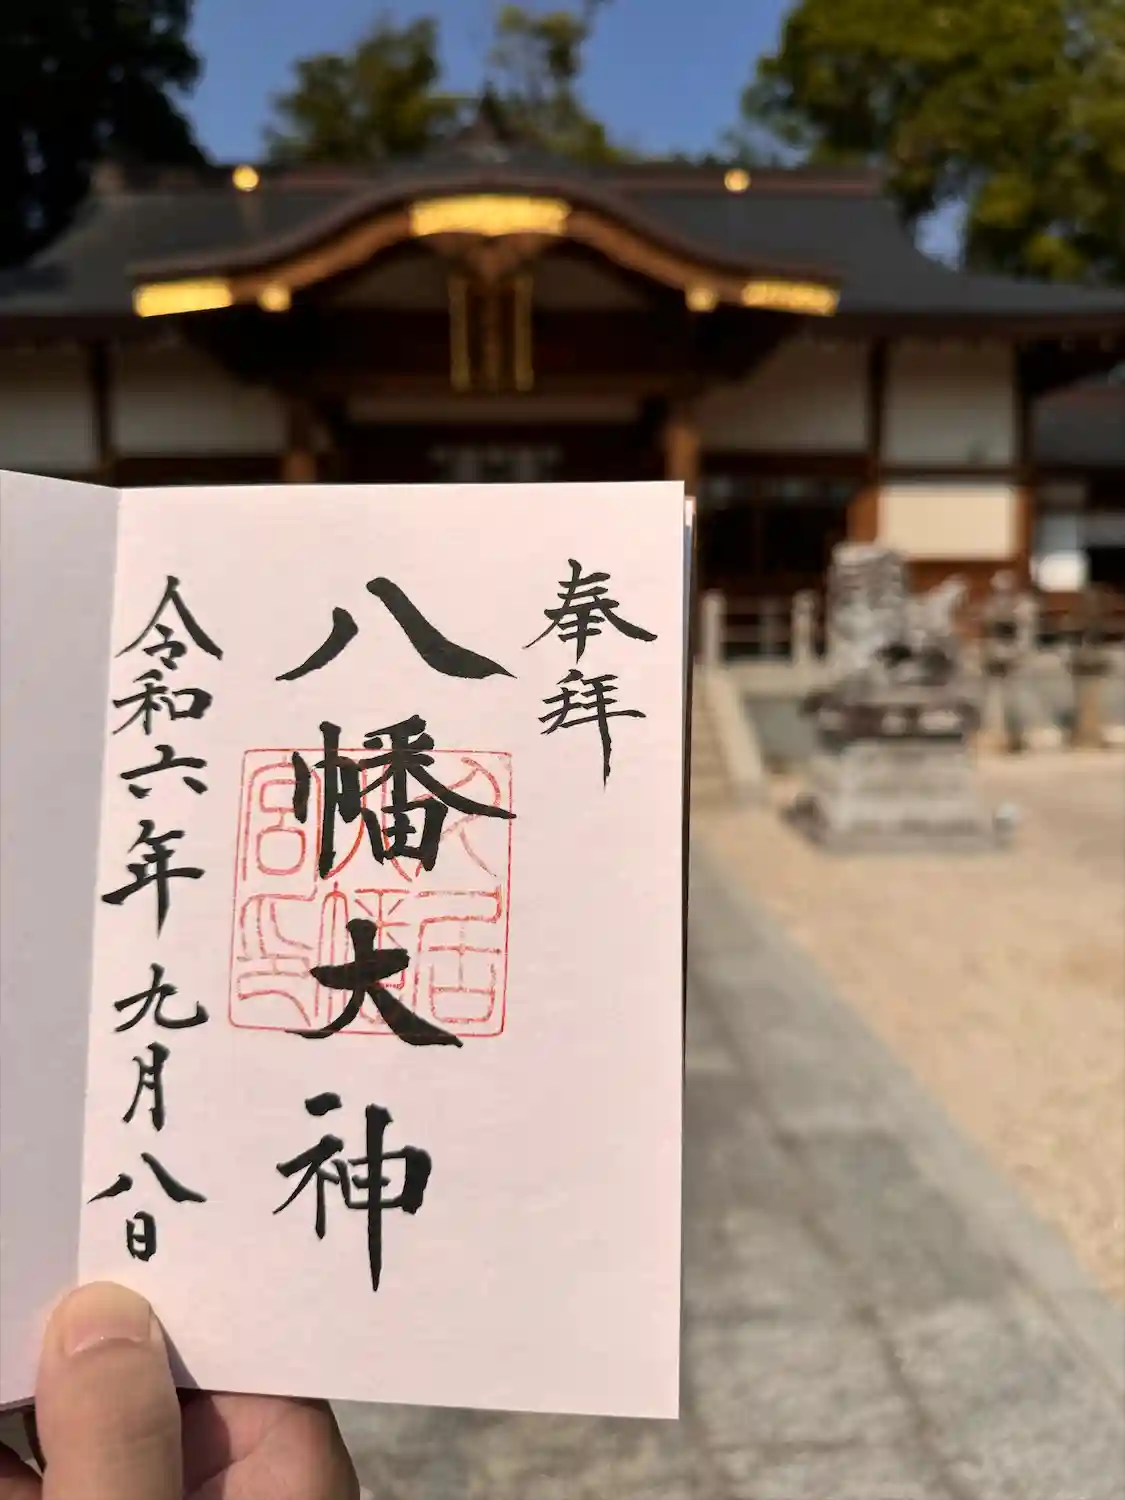 奉拝
八幡大神
令和六年九月八日
久居
八幡
宮印